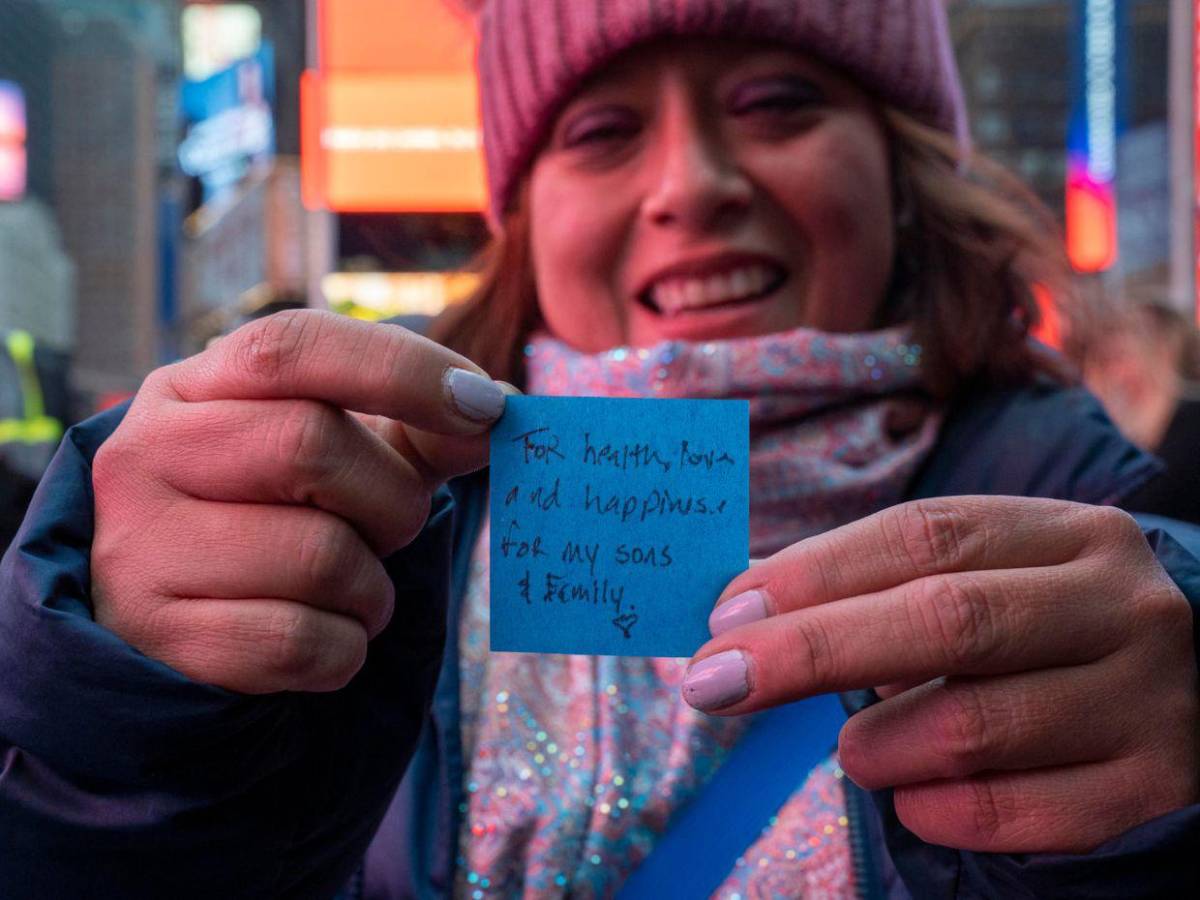 FOR health, love
and happiness
for my sons
& Family.